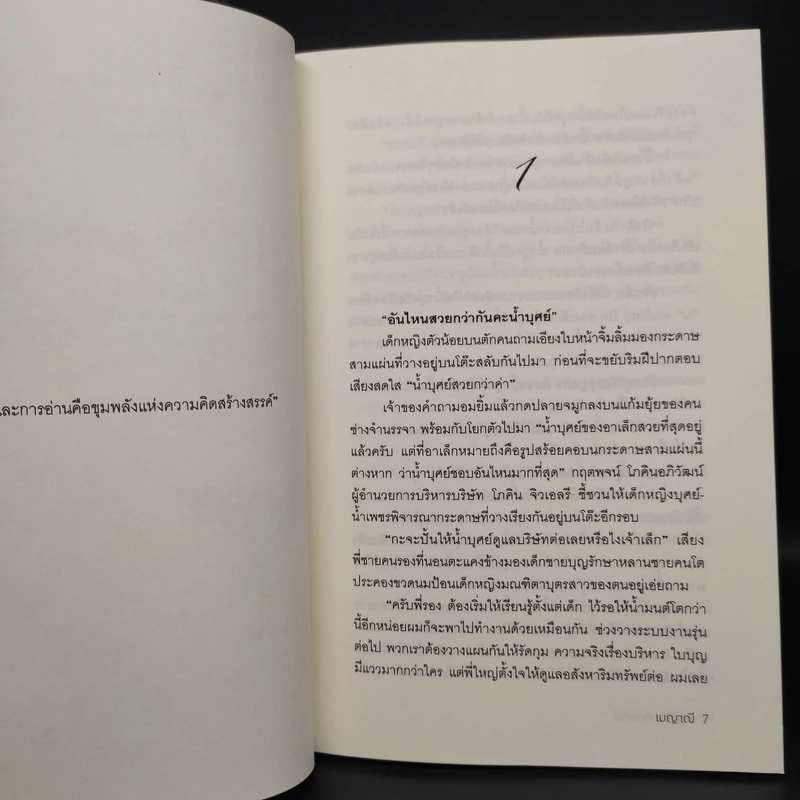 ละการอ่านคือขุมพลังแห่งความคิดสร้างสรรค์"
1
"อันไหนสวยกว่ากันคะน้ำบุศย์"
เด็กหญิงตัวน้อยบนตักคนถามเอียงใบหน้าจิ้มลิ้มมองกระดาษ
สามแผ่นที่วางอยู่บนโต๊ะสลับกันไปมา ก่อนที่จะขยับริมฝีปากตอบ
เสียงสดใส "น้ำบุศย์สวยกว่าค่า"
เจ้าของคำถามอมยิ้มแล้วกดปลายจมูกลงบนแก้มยุ้ยของคน
ช่างจำนรรจา พร้อมกับโยกตัวไปมา "น้ำบุศย์ของอาเล็กสวยที่สุดอยู่
แล้วครับ แต่ที่อาเล็กหมายถึงคือรูปสร้อยคอบนกระดาษสามแผ่นนี้
ต่างหาก ว่าน้ำบุศย์ชอบอันไหนมากที่สุด" กฤตพจน์ โภคินอภิวัฒน์
ผู้อำนวยการบริหารบริษัท โภคิน จิวเอลรี ชี้ชวนให้เด็กหญิงบุศย์-
น้ำเพชรพิจารณากระดาษที่วางเรียงกันอยู่บนโต๊ะอีกรอบ
"กะจะปั้นให้น้ำบุศย์ดูแลบริษัทต่อเลยหรือไงเจ้าเล็ก" เสียง
พี่ชายคนรองที่นอนตะแคงข้างมองเด็กชายบุญรักษาหลานชายคนโต
ประคองขวดนมป้อนเด็กหญิงมณฑิตาบุตรสาวของตนอยู่เอ่ยถาม
"ครับพี่รอง ต้องเริ่มให้เรียนรู้ตั้งแต่เด็ก ไว้รอให้น้ำมนต์โตกว่า
นี้อีกหน่อยผมก็จะพาไปทำงานด้วยเหมือนกัน ช่วงวางระบบงานรุ่น
ต่อไป พวกเราต้องวางแผนกันให้รัดกุม ความจริงเรื่องบริหาร ใบบุญ
มีแววมากกว่าใคร แต่พี่ใหญ่ตั้งใจให้ดูแลอสังหาริมทรัพย์ต่อ ผมเลย
เมญาณี 7